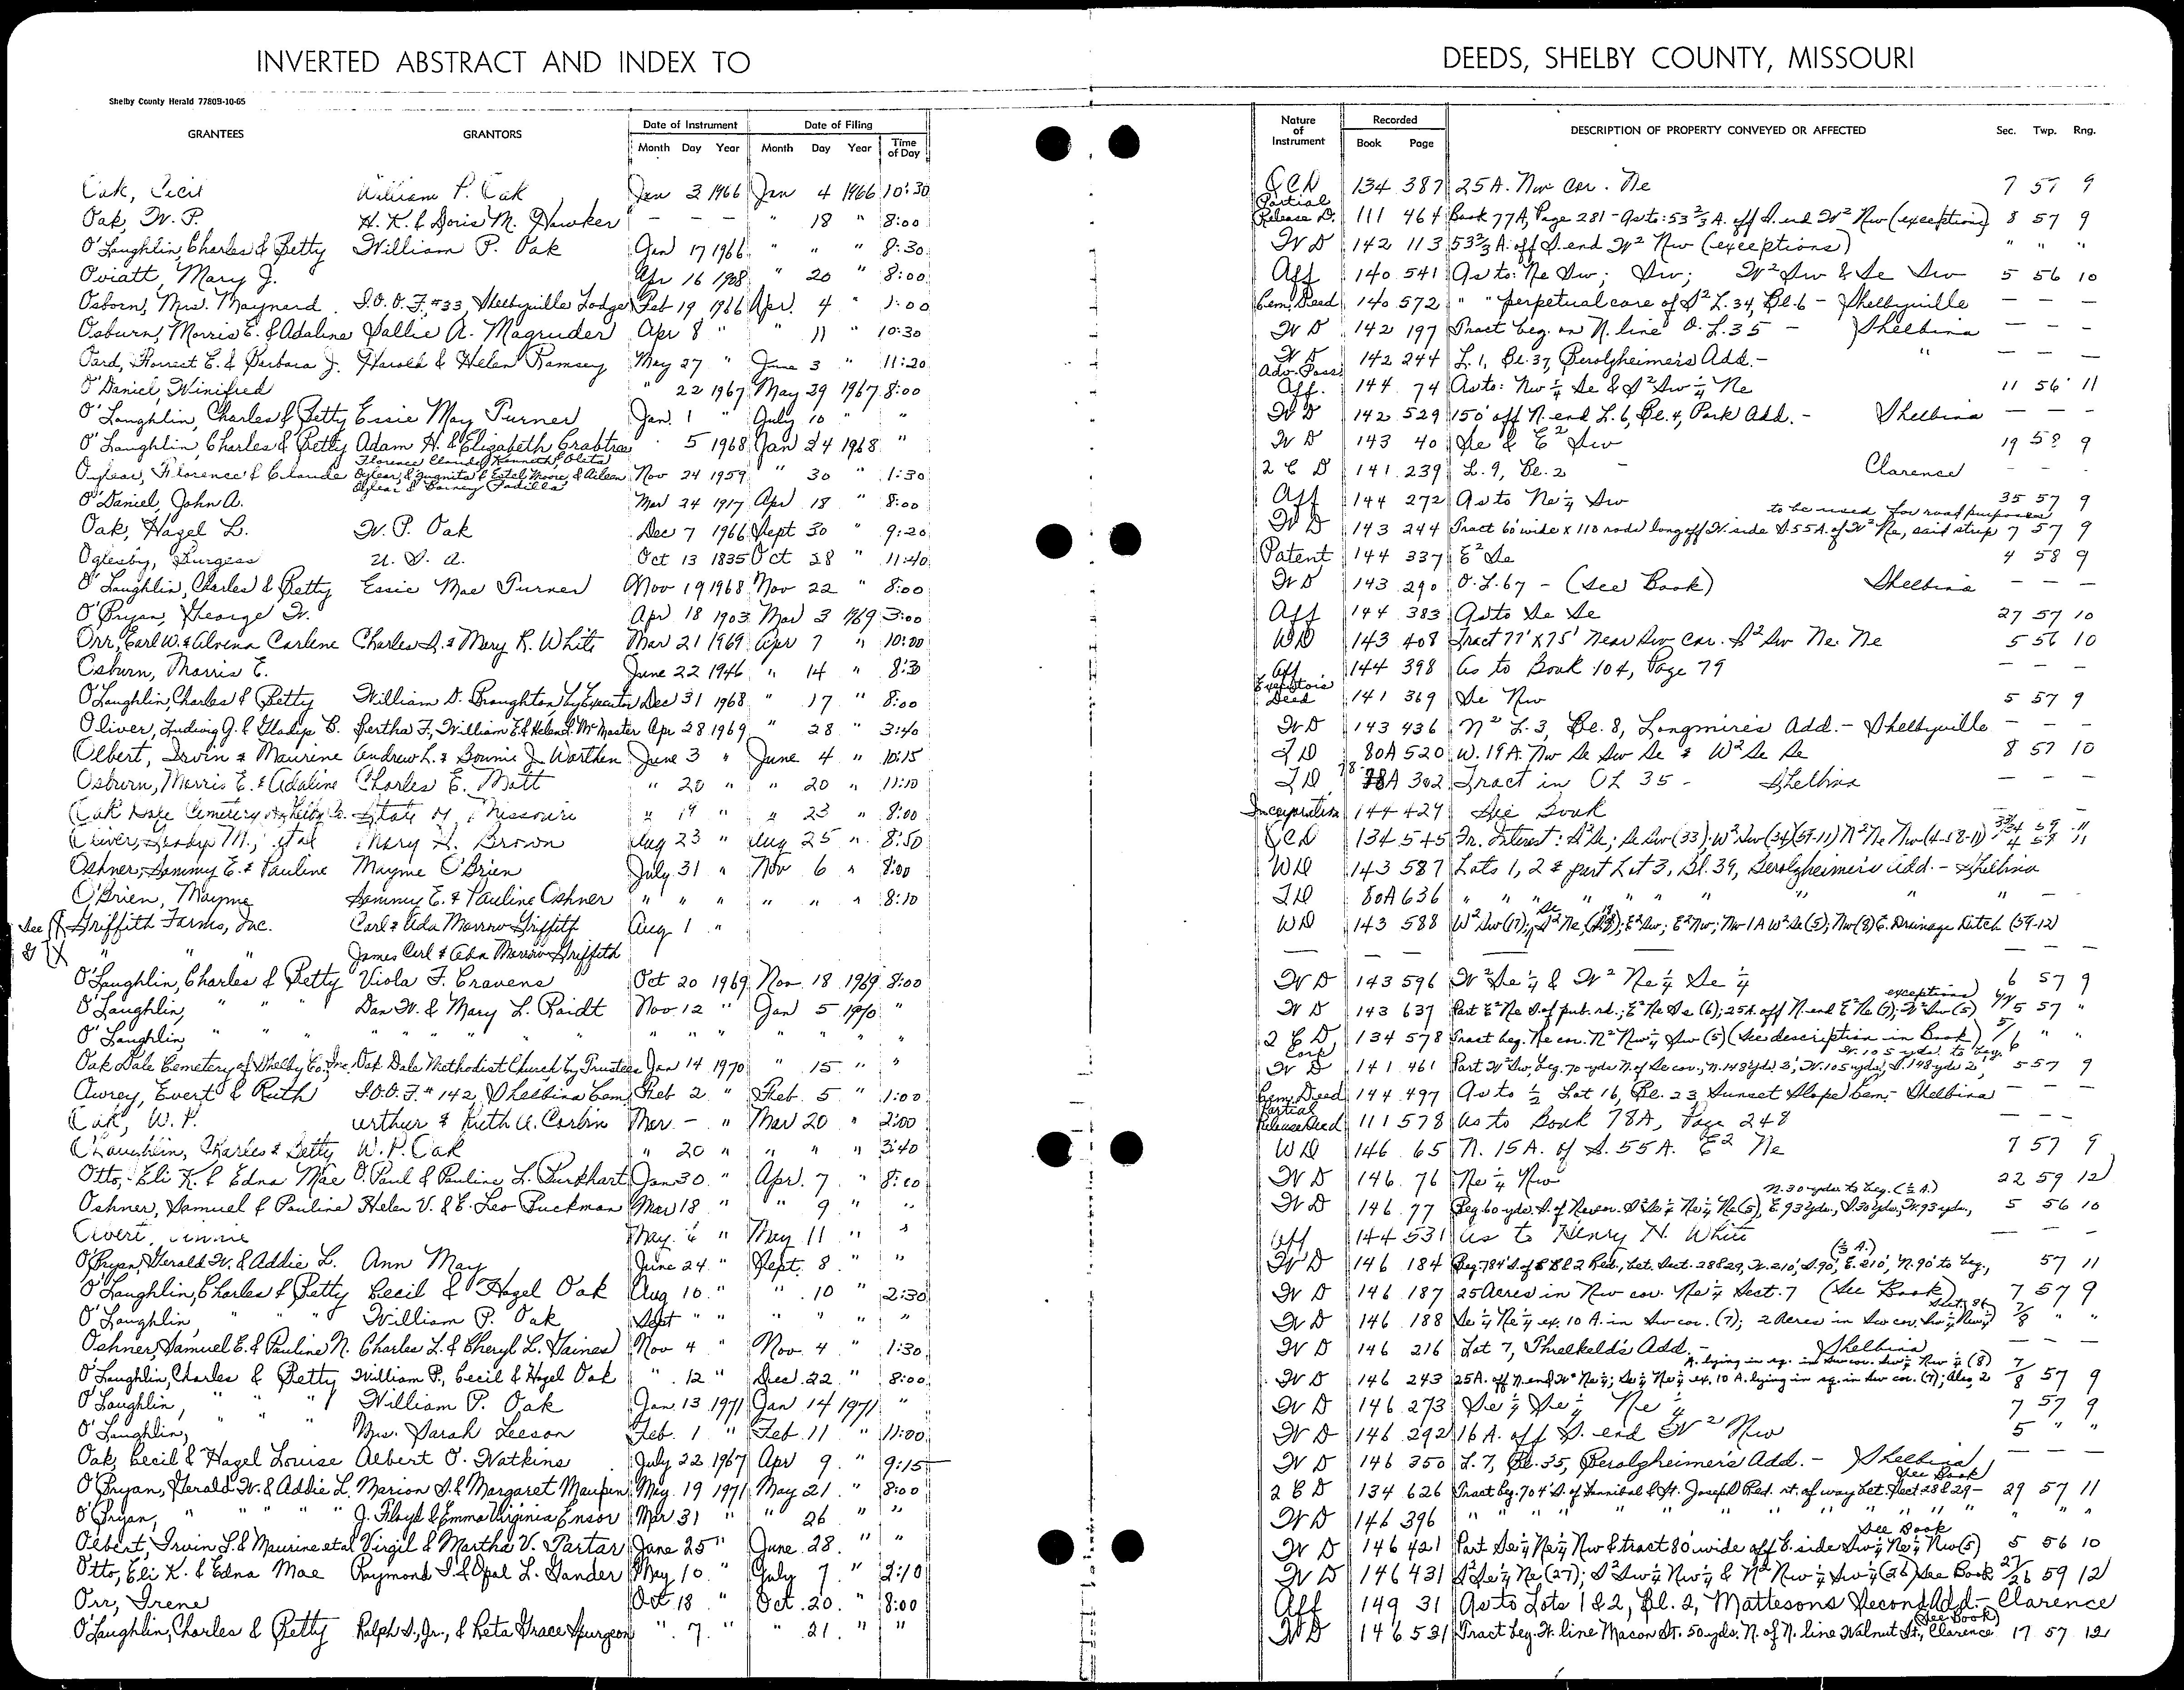 INVERTED ABSTRACT AND INDEX TO DEEDS, SHELBY COUNTY, MISSOURI
Shelby County Herald 7780B-10-65
GRANTEES GRANTORS Date of Instrument Date of Filing Nature of Instrument Recorded DESCRIPTION OF PROPERTY CONVEYED OR AFFECTED Sec. Twp. Rng.
Month Day Year Month Day Year Time of Day Book Page
Oak, Cecil William P. Oak Jan 3 1966 Jan 4 1966 10:30 QCD 134 387 25 A. Nw cor. Ne 7 57 9
Oak, W. P. H. K. & Doris M. Hawker – – – " 18 " 8:00 Partial Release D. 111 464 Book 77A, Page 281 - As to: 53 2/3 A. off S. end W² Nw (exceptions) 8 57 9
O'Laughlin, Charles & Betty William P. Oak Jan 17 1966 " " " 8:30 WD 142 113 53 2/3 A. off S. end W² Nw (exceptions) " " "
Oviatt, Mary J. Apr 16 1908 " 20 " 8:00 Aff 140 541 As to: Ne Sw; Sw; W² Sw & Se Sw 5 56 10
Osborn, Mrs. Maynard I.O.O.F. #33, Shelbyville Lodge Feb 19 1966 Apr. 4 " 1:00 Cem. Deed 140 572 " " perpetual care of S² L. 34, Bl. 6 - Shelbyville – – –
Osburn, Morris E. & Adaline Sallie A. Magruder Apr 8 " " 11 " 10:30 WD 142 197 Tract beg. on N. line O.L. 35 - Shelbina – – –
Oard, Forrest E. & Barbara J. Harold & Helen Ramsey May 27 " June 3 " 11:20 WD 142 244 L. 1, Bl. 37, Berolzheimer's Add. - " – – –
O'Daniel, Winifred " 22 1967 May 29 1967 8:00 Adv. Poss. Aff. 144 74 As to: Nw ¼ Se & S² Sw ¼ Ne 11 56 11
O'Laughlin, Charles & Betty Essie May Turner Jan. 1 " July 10 " " WD 142 529 150' off N. end L. 6, Bl. 4, Park Add. - Shelbina – – –
O'Laughlin, Charles & Betty Adam H. & Elizabeth Crabtree " 5 1968 Jan 24 1968 " WD 143 40 Se & E² Sw 19 9
Florence & Claude Nov 24 1959 " 30 " 1:30 2 C D 141 239 L. 9, Bl. 2 - Clarence – – –
O'Daniel, John A. Mar 24 1917 Apr 18 " 8:00 Aff 144 272 As to Ne ¼ Sw 35 57 9
Oak, Hazel L. W. P. Oak Dec 7 1966 Sept 30 " 9:20 WD 143 244 Tract 60' wide x 110 rods long off W. side S. 55 A. of W² Ne, said strip to be used for road purposes 7 57 9
Oglesby, Burgess U. S. A. Oct 13 1835 Oct 28 " 11:40 Patent 144 337 E² Se 4 58 9
O'Laughlin, Charles & Betty Essie Mae Turner Nov 19 1968 Nov 22 " 8:00 WD 143 290 O.L. 67 - (See Book) Shelbina – – –
O'Bryan, George W. Apr 18 1903 Mar 3 1969 3:00 Aff 144 383 As to Se Se 27 57 10
Orr, Earl W. & Alvena Carlene Charles S. & Mary R. White Mar 21 1969 Apr 7 " 10:00 WD 143 408 Tract 77' x 75' Near Sw cor. S² Sw Ne Ne 5 56 10
Osburn, Morris E. June 22 1946 " 14 " 8:30 Aff 144 398 As to Book 104, Page 79 – – –
O'Laughlin, Charles & Betty William D. Broughton, by Executor Dec 31 1968 " 17 " 8:00 Executor's Deed 141 369 Se Nw 5 57 9
Oliver, Ludwig J. & Gladys B. Bertha F., William E. & Helen L. McMaster Apr 28 1969 " 28 " 3:40 WD 143 436 N² L. 3, Bl. 8, Longmire's Add. - Shelbyville – – –
Olbert, Irvin & Maurine Andrew L. & Bonnie J. Worthen June 3 " June 4 " 10:15 TD 80A 520 W. 19 A. Nw Se Sw Se & W² Se Se 8 57 10
Osburn, Morris E. & Adaline Charles E. Mott " 20 " " 20 " 11:10 TD 78A 302 Tract in OL 35 - Shelbina – – –
Oak Dale Cemetery of Shelby Co. State of Missouri " 19 " " 23 " 8:00 Incorporation 144 429 See Book
Oliver, M., et al Mary H. Brown Aug 23 " Aug 25 " 8:50 QCD 134 545 Fr. Interest: S² Se; Se Sw (33); W² Sw (34) (59-11) N² Ne Nw (4-58-11)
Oshner, Sammy E. & Pauline Mayme O'Brien July 31 " Nov 6 " 8:00 WD 143 587 Lots 1, 2 & part Lot 3, Bl. 39, Berolzheimer's Add. - Shelbina
O'Brien, Mayme Sammy E. & Pauline Oshner " " " " " " 8:10 TD 80A 636 " " " " " " "
See G Griffith Farms, Inc. Carl & Ada Morrow Griffith Aug 1 " WD 143 588 W² Sw (17); S² Ne, E² Sw; E² Nw; Nw 1 A W² Se (5); Nw (8) E. Drainage Ditch (59-12)
" " " James Carl & Ada Morrow Griffith
O'Laughlin, Charles & Betty Viola F. Cravens Oct 20 1969 Nov. 18 1969 8:00 WD 143 596 W² Se ¼ & W² Ne ¼ Se ¼ 6 57 9
O'Laughlin, " " " Dan W. & Mary L. Raidt Nov. 12 " Jan 5 1970 " WD 143 637 Part E² Ne S. of pub. rd.; E² Ne Se (6); 25 A. off N. end E² Ne (7); W² Sw (5) exceptions 57 "
O'Laughlin, " " " " " " " " " " " " 2 C D 134 578 Tract beg. Ne cor. N² Nw ¼ Sw (5) (See description in Book) " "
Oak Dale Cemetery of Shelby Co., Inc. Oak Dale Methodist Church by Trustees Jan 14 1970 " 15 " " Corp WD 141 461 Part W² Sw, beg. 70 yds N. of Se cor., N. 148 yds 2', W. 105 yds, S. 148 yds 2', W. 105 yds. to beg. 5 57 9
Awrey, Evert & Ruth I.O.O.F. #142, Shelbina Cem. Feb 2 " Feb. 5 " 1:00 Cem. Deed 144 497 As to ½ Lot 16, Bl. 23, Sunset Slope Cem. - Shelbina – – –
Oak, W. P. Arthur & Ruth A. Corbin Mar. – " Mar 20 " 2:00 Partial Release Deed 111 578 As to Book 78A, Page 248 – – –
O'Laughlin, Charles & Betty W. P. Oak " 20 " " " " 3:40 WD 146 65 N. 15 A. of S. 55 A. E² Ne 7 57 9
Otto, Eli K. & Edna Mae O. Paul & Pauline L. Burkhart Jan 30 " Apr. 7 " 8:00 WD 146 76 Ne ¼ Nw 22 59 12
Oshner, Samuel & Pauline Helen V. & E. Leo Buckman Mar 18 " " 9 " " WD 146 77 Beg 60 yds. S. of Ne cor. S² Se ¼ Ne ¼ Ne (5), E. 93 yds., S. 30 yds., W. 93 yds., N. 30 yds. to beg. (½ A.) 5 56 10
May 4 " May 11 " " Aff 144 531 As to Henry N. White – –
O'Bryan, Gerald W. & Addie L. Ann May June 24 " Sept. 8 " " WD 146 184 Beg. 784' S. of Rd., bet. Sect. 28 & 29, W. 210', S. 90', E. 210', N. 90' to beg., (½ A.) 57 11
O'Laughlin, Charles & Betty Cecil & Hazel Oak Aug 10 " " 10 " 2:30 WD 146 187 25 Acres in Nw cor. Ne ¼ Sect. 7 (See Book) 7 57 9
O'Laughlin, " " " William P. Oak Sept " " " " " " WD 146 188 Se ¼ Ne ¼ ex. 10 A. in Sw cor. (7); 2 Acres in Sw cor. Sw ¼ Nw ¼ 7/8 " "
Oshner, Samuel E. & Pauline N. Charles L. & Cheryl L. Haines Nov 4 " Nov. 4 " 1:30 WD 146 216 Lot 7, Threlkeld's Add. - Shelbina – – –
O'Laughlin, Charles & Betty William P., Cecil & Hazel Oak " 12 " Dec. 22 " 8:00 WD 146 243 25 A. off N. end W² Ne ¼; Se ¼ Ne ¼ ex. 10 A. lying in sq. in Sw cor. (7); Also, 2 A. lying in sq. in Sw cor. Sw ¼ Nw ¼ (8) 7/8 57 9
O'Laughlin, " " " William P. Oak Jan. 13 1971 Jan 14 1971 " WD 146 273 Se ¼ Se ¼ Ne ¼ 7 57 9
O'Laughlin, " " " Mrs. Sarah Leeson Feb. 1 " Feb. 11 " 11:00 WD 146 292 16 A. off S. end W² Nw 5 " "
Oak, Cecil & Hazel Louise Albert O. Watkins July 22 1967 Apr 9 " 9:15 WD 146 350 L. 7, Bl. 35, Berolzheimer's Add. - Shelbina – – –
O'Bryan, Gerald W. & Addie L. Marion S. & Margaret Maupin May 19 1971 May 21 " 8:00 2 C D 134 626 Tract beg. 704' S. of Hannibal & St. Joseph Rd. rt. of way bet. Sect 28 & 29 - See Book 29 57 11
O'Bryan, " " " J. Floyd & Emma Virginia Ensor Mar 31 " " 26 " " WD 146 396 " " " " " " " " " " "
Olbert, Irvin L. & Maurine et al Virgil & Martha V. Partar June 25 " June 28 " " WD 146 421 Part Se ¼ Ne ¼ Nw & tract 80' wide off E. side Sw ¼ Ne ¼ Nw (5) See Book 5 56 10
Otto, Eli K. & Edna Mae Raymond I. & Opal L. Gander May 10 " July 7 " 2:10 WD 146 431 S² Se ¼ Ne (27); S² Sw ¼ Nw ¼ & N² Nw ¼ Sw ¼ (26) See Book 27/26 59 12
Orr, Irene Oct 18 " Oct. 20 " 8:00 Aff 149 31 As to Lots 1 & 2, Bl. 2, Mattesons Second Add. - Clarence
O'Laughlin, Charles & Betty Ralph S., Jr., & Reta Grace Spurgeon " 7 " " 21 " " WD 146 531 Tract beg. W. line Macon St. 50 yds. N. of N. line Walnut St., Clarence (See Book) 17 57 12